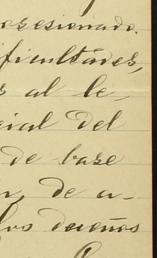 osesionado.
ificultades,
s al le-
cial del
de base
n, de a-
los dueños